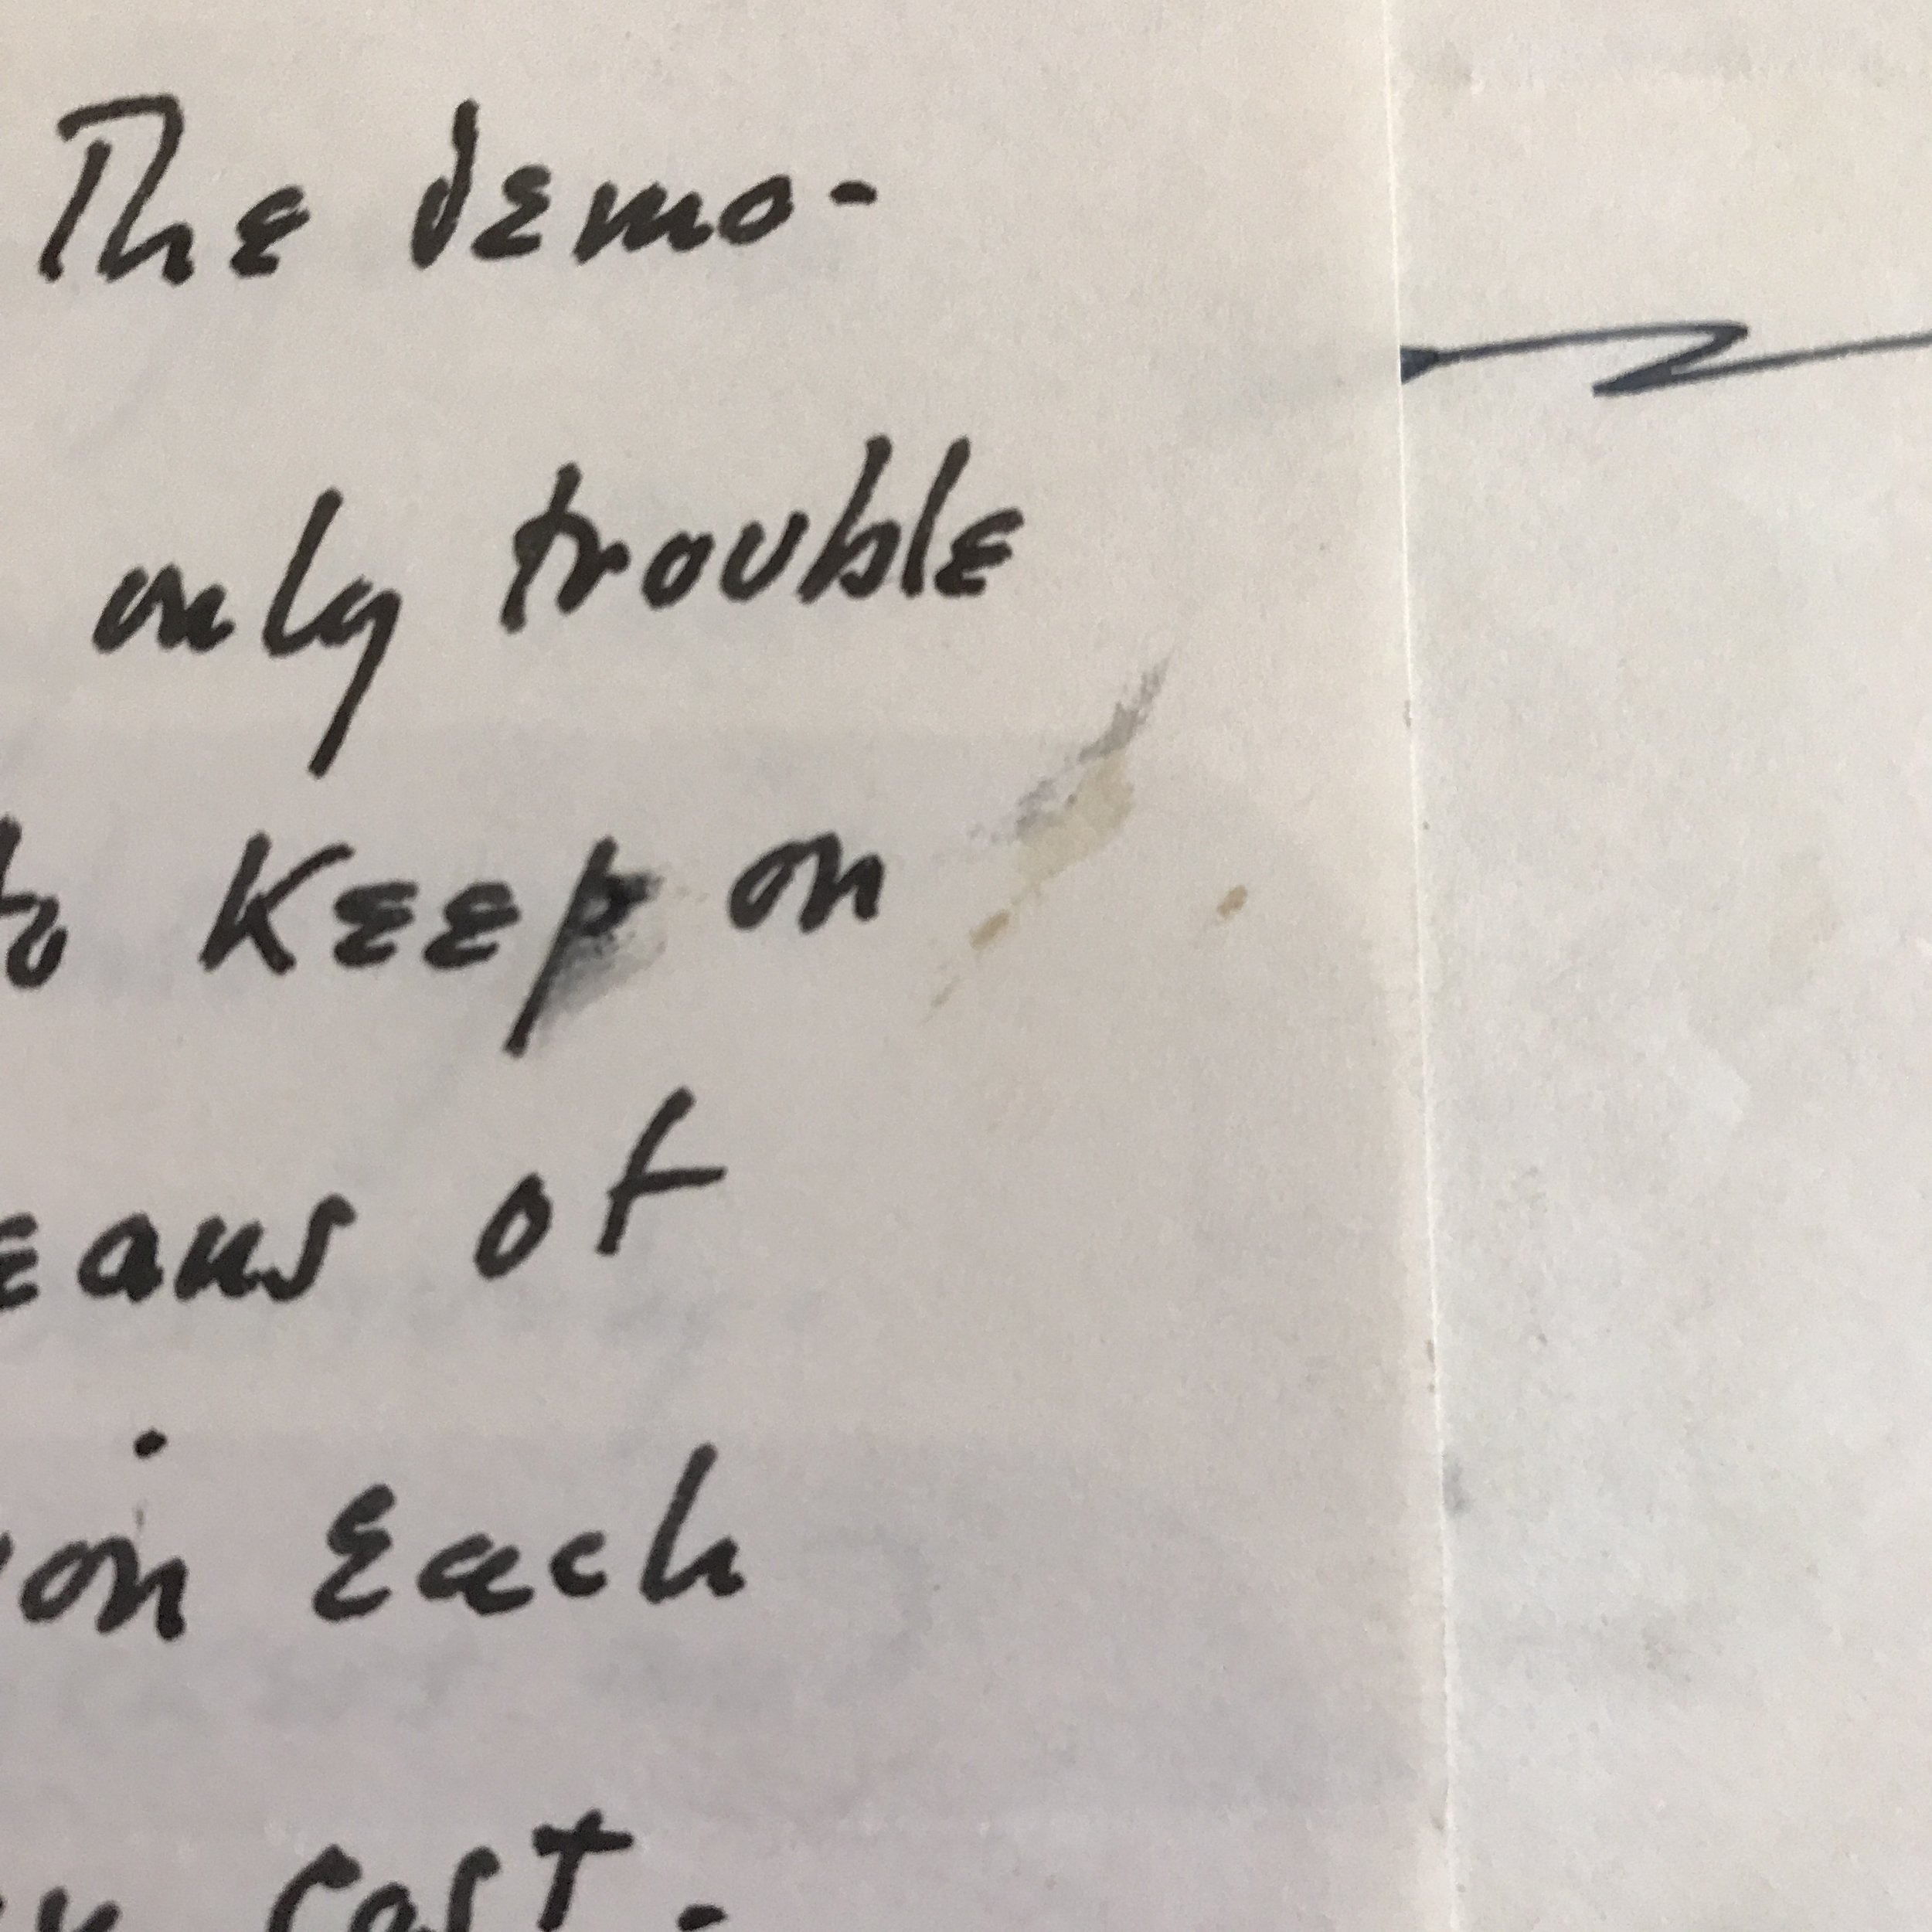 The demo-
only trouble
to keep on
eans of
on each
cost.